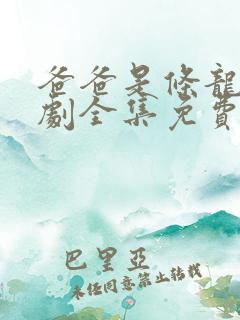 爸爸是條龍
劇全集免費
巴里亞
未任同意禁止转载